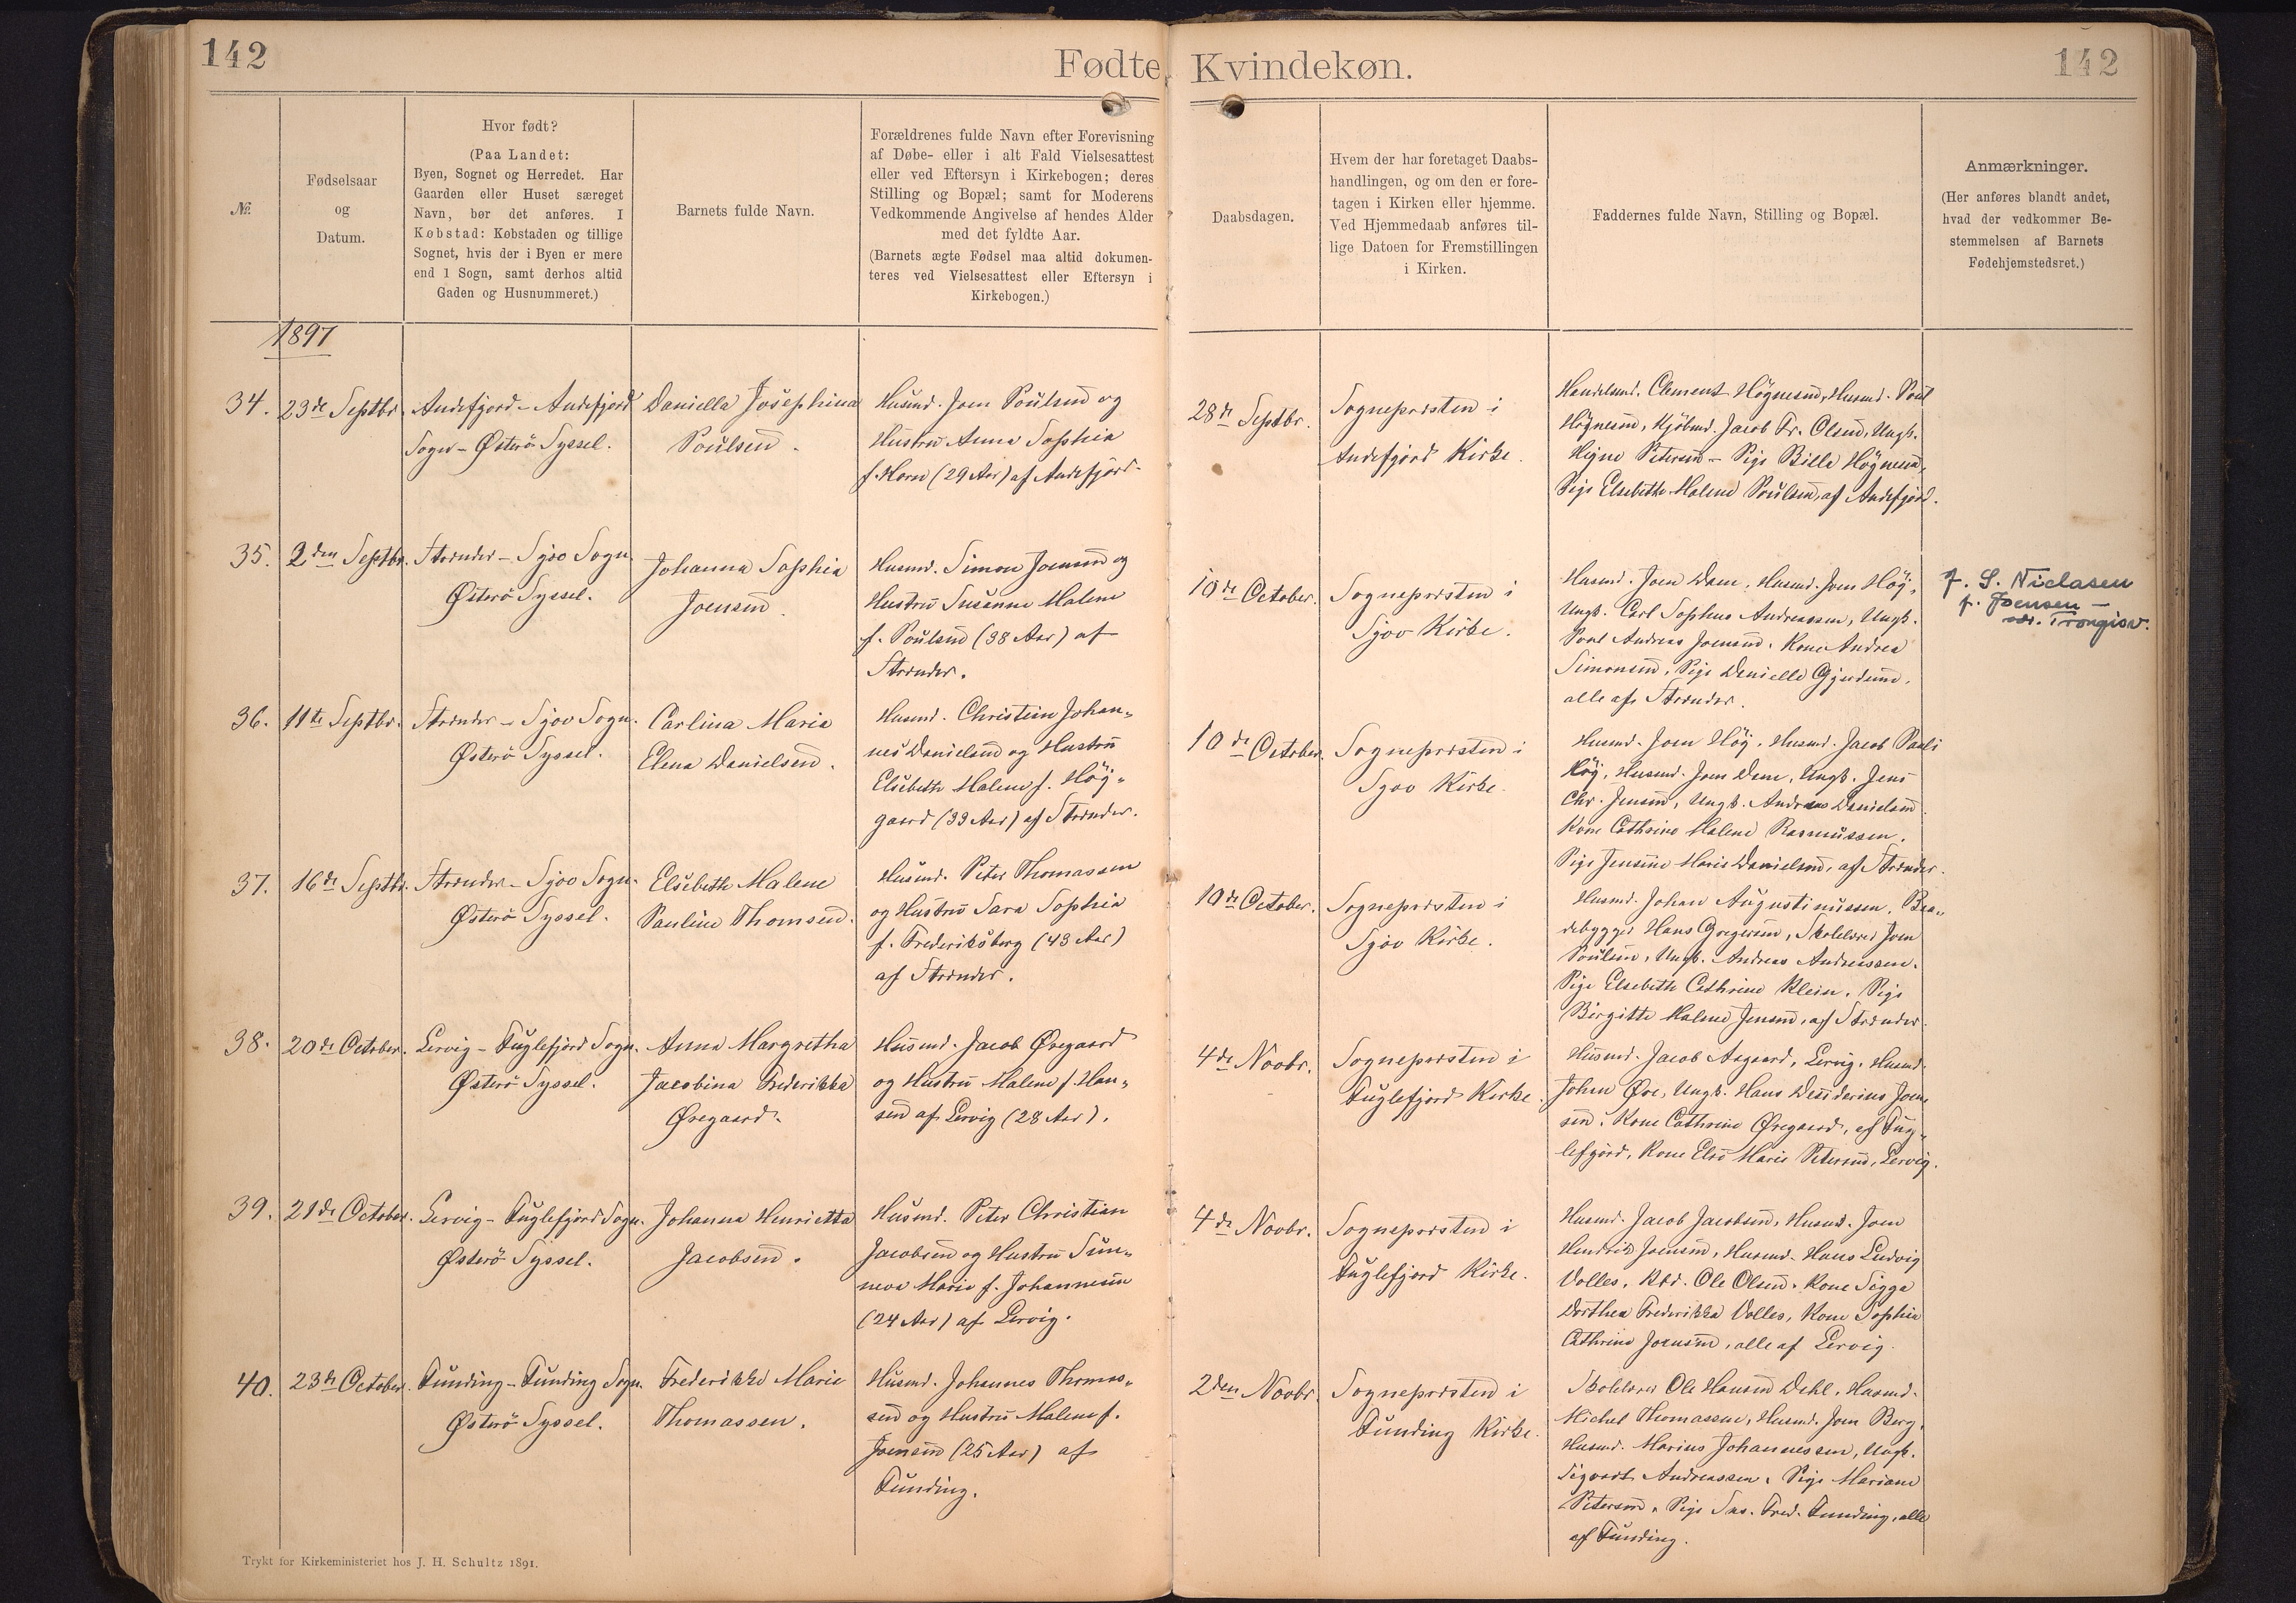 142
Fødte Kvindekøn.
142
№.
Fødselsaar
og
Datum.
Hvor født?
(Paa Landet:
Byen, Sognet og Herredet. Har
Gaarden eller Huset særeget
Navn, bør det anføres. I
Købstad: Købstaden og tillige
Sognet, hvis der i Byen er mere
end 1 Sogn, samt derhos altid
Gaden og Husnummeret.)
Barnets fulde Navn.
Forældrenes fulde Navn efter Forevisning
af Døbe- eller i alt Fald Vielsesattest
eller ved Eftersyn i Kirkebogen; deres
Stilling og Bopæl; samt for Moderens
Vedkommende Angivelse af hendes Alder
med det fyldte Aar.
(Barnets ægte Fødsel maa altid dokumen-
teres ved Vielsesattest eller Eftersyn i
Kirkebogen.)
Daabsdagen.
Hvem der har foretaget Daabs-
handlingen, og om den er fore-
tagen i Kirken eller hjemme.
Ved Hjemmedaab anføres til-
lige Datoen for Fremstillingen
i Kirken.
Faddernes fulde Navn, Stilling og Bopæl.
Anmærkninger.
(Her anføres blandt andet,
hvad der vedkommer Be-
stemmelsen af Barnets
Fødehjemstedsret.)
1897
34.
23de Septbr.
Andefjord - Andefjord
Sogn - Østerö Syssel.
Daniella Josephina
Poulsen.
Husmd. Joen Poulsen og
Hustru Anna Sophia
f. Horn (29 Aar) af Andefjord.
28de Septbr.
Sognepræsten i
Andefjord Kirke.
Handelsmd. Clement Högnesen, Husmd. Poul
Högnesen, Kjöbmd. Jacob Fr. Olsen, Ungk.
Högne Petersen - Pige Billa Högnesen,
Pige Elsebeth Malene Poulsen, af Andefjord.
35.
2den Septbr.
Strænder - Sjov Sogn.
Østerö Syssel.
Johanna Sophia
Joensen.
Husmd. Simon Joensen og
Hustru Susanne Malene
f. Poulsen (38 Aar) af
Strænder.
10de October.
Sognepræsten i
Sjov Kirke.
Husmd. Joen Dam, Husmd. Joen Höj,
Ungk. Carl Sophus Andreassen, Ungk.
Poul Andreas Joensen, Kone Andrea
Simonsen, Pige Danielle Gjendum,
alle af Strænder.
J. S. Niclasen
f. Joensen -
Trongisv.
36.
11te Septbr.
Strænder - Sjov Sogn.
Østerö Syssel.
Carlina Maria
Elena Danielsen.
Husmd. Christian Johan-
nes Danielsen og Hustru
Elsebeth Malene f. Höj-
gaard (33 Aar) af Strænder.
10de October.
Sognepræsten i
Sjov Kirke.
Husmd. Joen Höj, Husmd. Jacob Pauli
Höj, Husmd. Joen Dam, Ungk. Jens
Chr. Jensen, Ungk. Andreas Danielsen.
Kone Cathrine Malene Rasmussen.
Pige Jensine Marie Danielsen, af Strænder.
37.
16de Septbr.
Strænder - Sjov Sogn.
Østerö Syssel.
Elsebeth Malene
Pauline Thomsen.
Husmd. Peter Thomassen
og Hustru Sara Sophia
f. Frederiksberg (43 Aar)
af Strænder.
10de October.
Sognepræsten i
Sjov Kirke.
Husmd. Johan Augustinussen, Baa-
debygger Hans Gregersen, Skolelærer Joen
Poulsen, Ungk. Andreas Andreassen.
Pige Elsebeth Cathrine Klein, Pige
Birgitte Malene Jensen, af Strænder.
38.
20de October.
Lervig - Fuglefjord Sogn.
Østerö Syssel.
Anna Margretha
Jacobina Frederikka
Øregaard.
Husmd. Jacob Øregaard
og Hustru Malene f. Han-
sen af Lervig (28 Aar).
4de Novbr.
Sognepræsten i
Fuglefjord Kirke.
Husmd. Jacob Aagaard, Lervig, Husmd.
Johan Øre, Ungk. Hans Desiderius Joen-
sen, Kone Cathrine Øregaard, af Fug-
lefjord, Kone Else Marie Petersen, Lervig.
39.
21de October.
Lervig - Fuglefjord Sogn.
Østerö Syssel.
Johanna Henrietta
Jacobsen.
Husmd. Peter Christian
Jacobsen og Hustru Sun-
neva Marie f. Johannesen
(24 Aar) af Lervig.
4de Novbr.
Sognepræsten i
Fuglefjord Kirke.
Husmd. Jacob Jacobsen, Husmd. Joen
Hendrik Joensen, Husmd. Hans Ludvig
Volles, Ole Olsen, Kone Sigga
Dorthea Frederikka Volles, Kone Sophia
Cathrine Joensen, alle af Lervig.
40.
23de October.
Funding - Funding Sogn.
Østerö Syssel.
Frederikke Marie
Thomassen.
Husmd. Johannes Thomas-
sen og Hustru Malene f.
Joensen (25 Aar) af
Funding.
2den Novbr.
Sognepræsten i
Funding Kirke.
Skolelærer Ole Hansen Dahl, Husmd.
Michel Thomassen, Husmd. Joen Berg,
Husmd. Marius Johannessen, Ungk.
Sigvart Andreassen, Pige Mariane
Petersen, Pige Sus. Fred. Funding, alle
af Funding.
Trykt for Kirkeministeriet hos J. H. Schultz 1891.